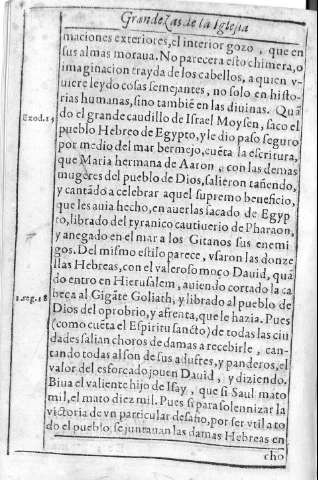 Grandezas de la Iglesia
maciones exteriores, el interior gozo, que en
sus almas moraua. No parecera esto chimera, o
imaginacion trayda de los cabellos, a quien v-
uiere leydo cosas semejantes, no solo en histo-
rias humanas, sino tambiē en las diuinas. Quā
Exod. 15
do el grande caudillo de Israel Moysen, saco el
pueblo Hebreo de Egypto, y le dio passo seguro
por medio del mar bermejo, cuēta la escritura,
que Maria hermana de Aaron, con las demas
mugeres del pueblo de Dios, salieron tañendo,
y cantādo a celebrar aquel supremo beneficio,
que les auia hecho, en auerlas sacado de Egyp
to, librado del tyranico cautiuerio de Pharaon,
y anegado en el mar a los Gitanos sus enemi
gos. Del mismo estilo parece, vsaron las donze
llas Hebreas, con el valeroso moço Dauid, quā
do entro en Hierusalem, auiendo cortado la ca
1. reg. 18
beça al Gigāte Goliath, y librado al pueblo de
Dios del oprobrio, y afrenta, que le hazia. Pues
(como cuēta el Espiritu sancto) de todas las ciu
dades salian choros de damas a recebirle, can-
tando todas al son de sus adufres, y panderos, el
valor del esforçado jouen Dauid, y diziendo.
Biua el valiente hijo de Isay, que si Saul mato
mil, el mato diez mil. Pues si para solennizar la
victoria de vn particular desafio, por ser vtil a to
do el pueblo, se juntauan las damas Hebreas en
cho